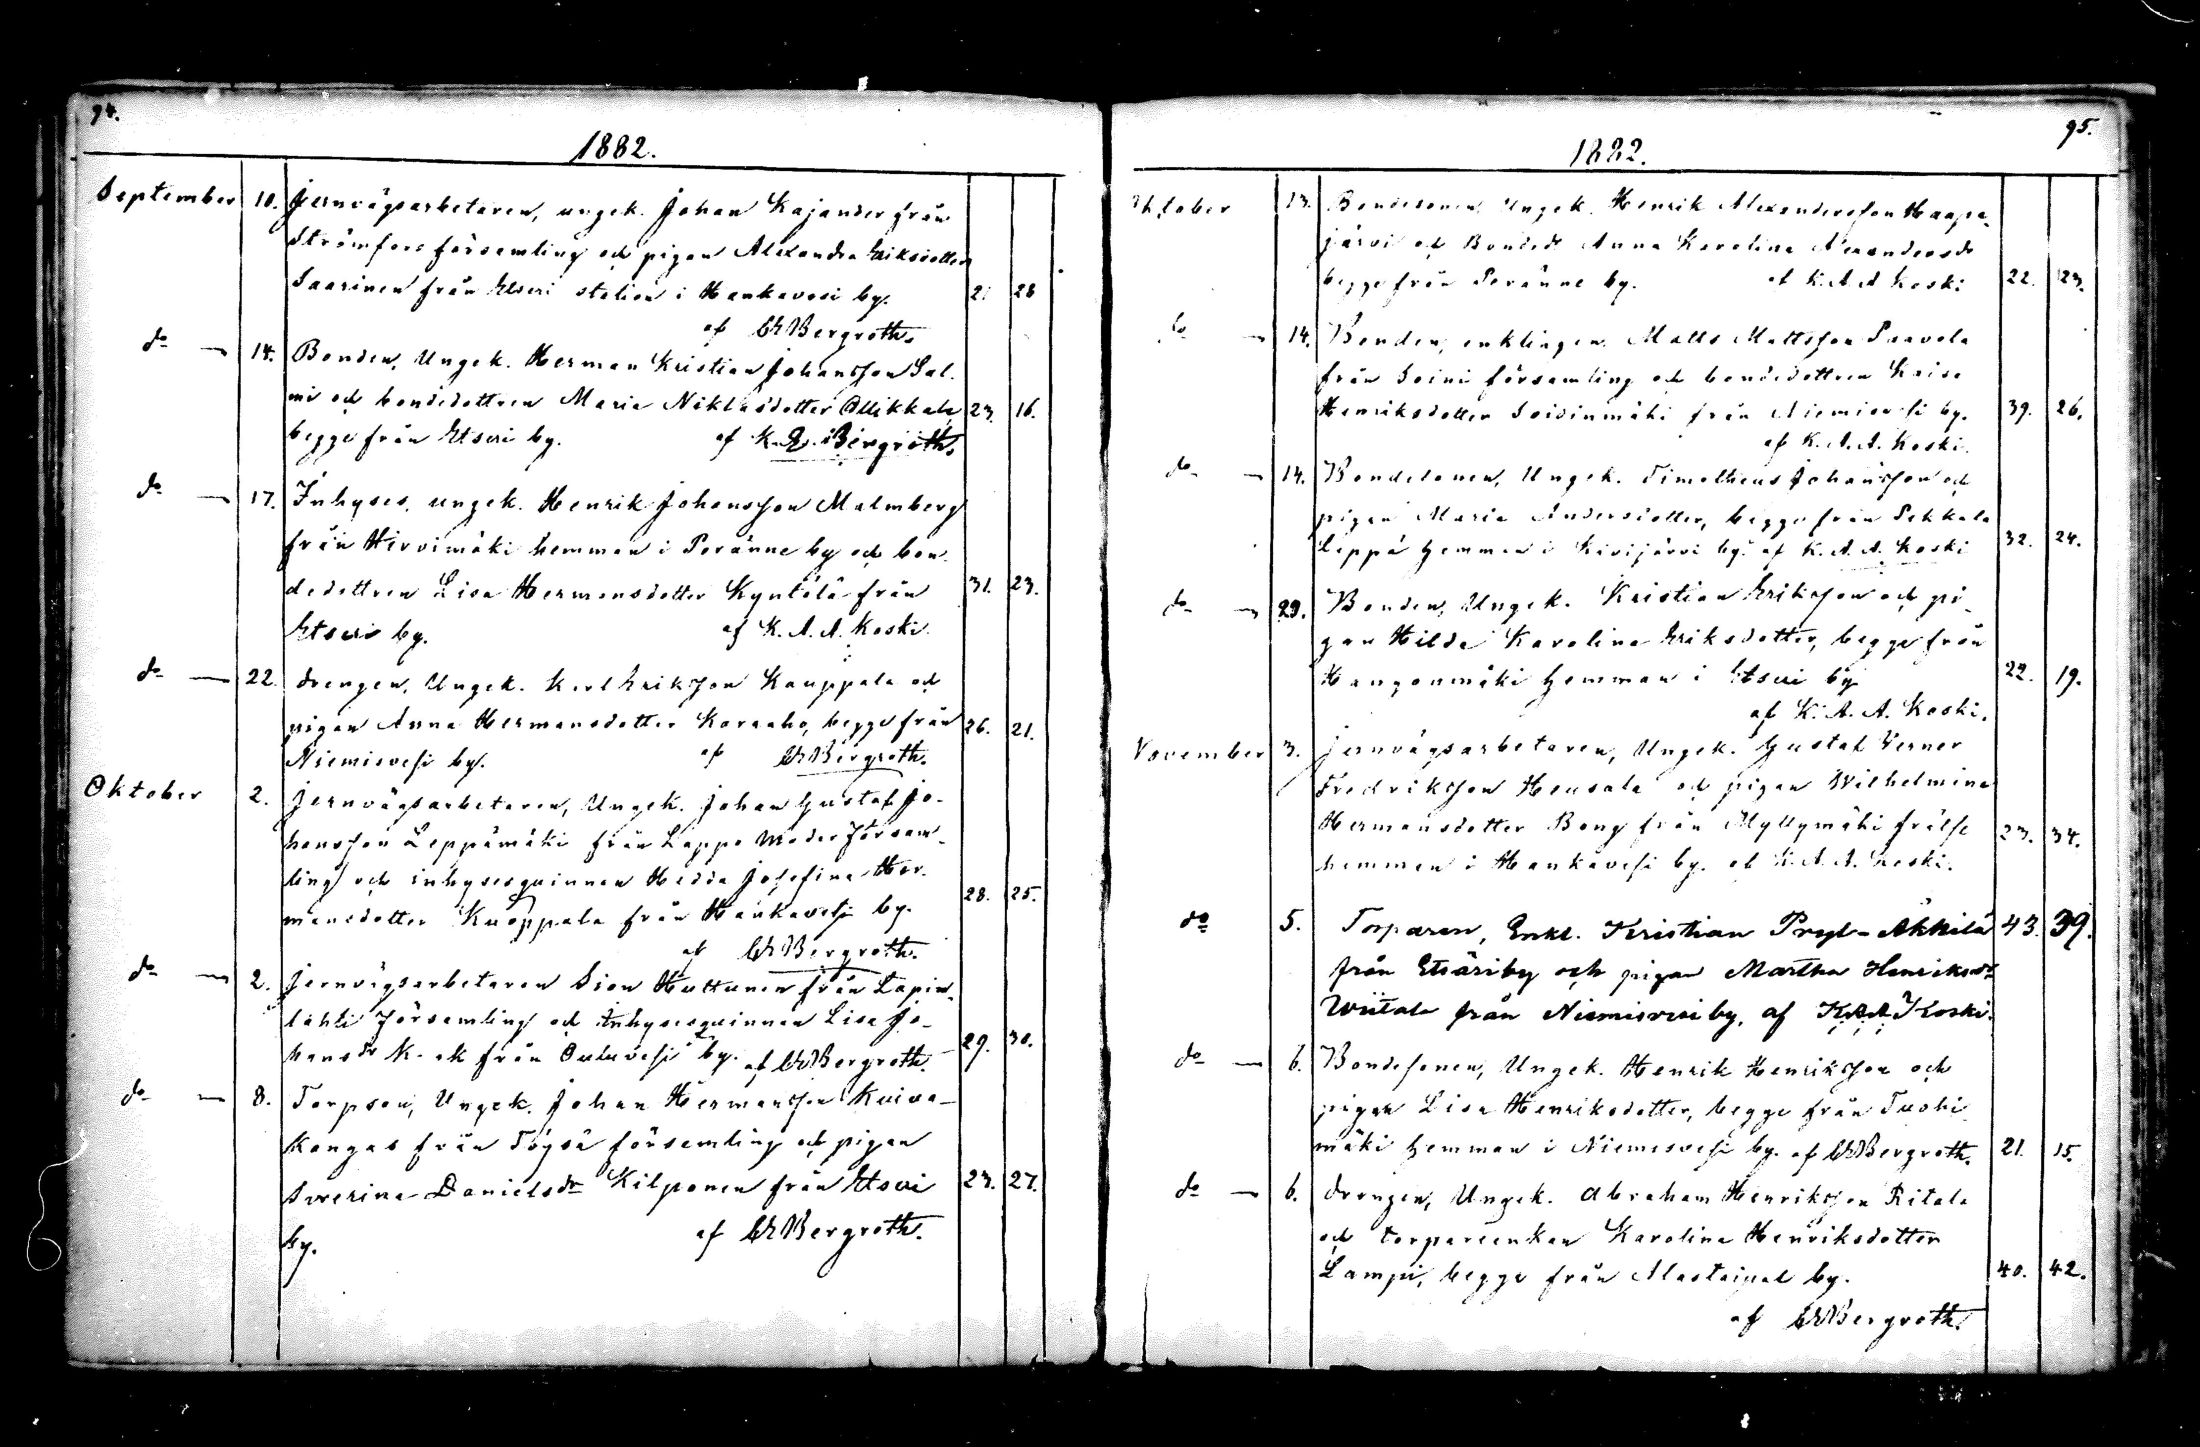 94.
1882.
September 10. Jernvägsarbetaren, ungek. Johan Kajander från
Strömfors församling och pigan Alexandra Eriksdotter
Saarinen från Etseri station i Hankavesi by. 21 28
af CEBergroth.
do 14. Bonden, Ungek. Herman Kristian Johansson Sal-
mi och bondedottren Maria Niklasdotter Ollikkala 23. 16.
begge från Etseri by. af K. E. Bergroth.
do 17. Inhyses, ungek. Henrik Johansson Malmberg
från Hirvimäki hemman i Peränne by och bon-
dedottren Lisa Hermansdotter Kyntölä från 31. 23.
Etseri by. af K. A. A. Koski.
do 22. drengen, Ungek. Karl Eriksson Kauppala och
pigan Anna Hermansdotter Koraaho, begge från 26. 21.
Niemisvesi by. af CEBergroth.
Oktober 2. Jernvägsarbetaren, Ungek. Johan Gustaf Jo-
hansson Leppämäki från Lappo Moder församl-
ling och inhysesqvinnan Hedda Josefina Her-
mansdotter Kuoppala från Hankavesi by. 28. 25.
af CEBergroth.
do 2. Jernvägsarbetaren Sion Huttunen från Lapin-
lahti församling och Inhysesqvinnan Lisa Jo-
hansdr från Ouluvesi by. af CEBergroth. 29. 30.
do 8. Torpson, Ungek. Johan Hermansson Kuiva-
kangas från Töysä församling och pigan
Severina Danielsdr Kilponen från Etseri 23. 27.
by. af CEBergroth.
95.
1882.
Oktober 13. Bondesonen Ungek. Henrik Alexandersson Haapa-
järvi och Bondedr Anna Karolina Alexandersdr
begge från Peränne by. af K. A. A Koski 22. 23.
do 14. Bonden, enklingen Matts Mattsson Paavola
från Soini församling och bondedottren Kaisa
Henriksdotter Soidinmäki från Niemisvesi by. 39. 26.
af K. A. A. Koski.
do 14. Bondesonen, Ungek. Timotheus Johansson och
pigan Maria Andersdotter, begge från Pekkala
Leppä hemman i Kivijärvi by. af K. A. A. Koski 32. 24.
do 29. Bonden, Ungek. Kristian Eriksson och pi-
gan Hilda Karolina Eriksdotter, begge från
Hangonmäki hemman i Etseri by 22. 19.
af K. A. A. Koski.
November 3. Jernvägsarbetaren, Ungek. Gustaf Verner
Fredriksson Heusala och pigan Wilhelmina
Hermansdotter Bong från Myllymäki frälse 23. 34.
hemman i Hankavesi by. af K. A. A. Koski.
do 5. Torparen, Enkl. Kristian Pryl-Akkila 43. 39.
från Etsäriby och pigan Martha Henriksdr
Wiitala från Niemisvesi by, af K.A.A Koski.
do 6. Bondesonen, Ungek. Henrik Henriksson och
pigan Lisa Henriksdotter, begge från Tuohi-
mäki hemman i Niemisvesi by. af CEBergroth. 21. 15.
do 6. drengen, Ungek. Abraham Henriksson Ritala
och torpareenkan Karolina Henriksdotter
Lampi, begge från Alastaipal by. 40. 42.
af CEBergroth.